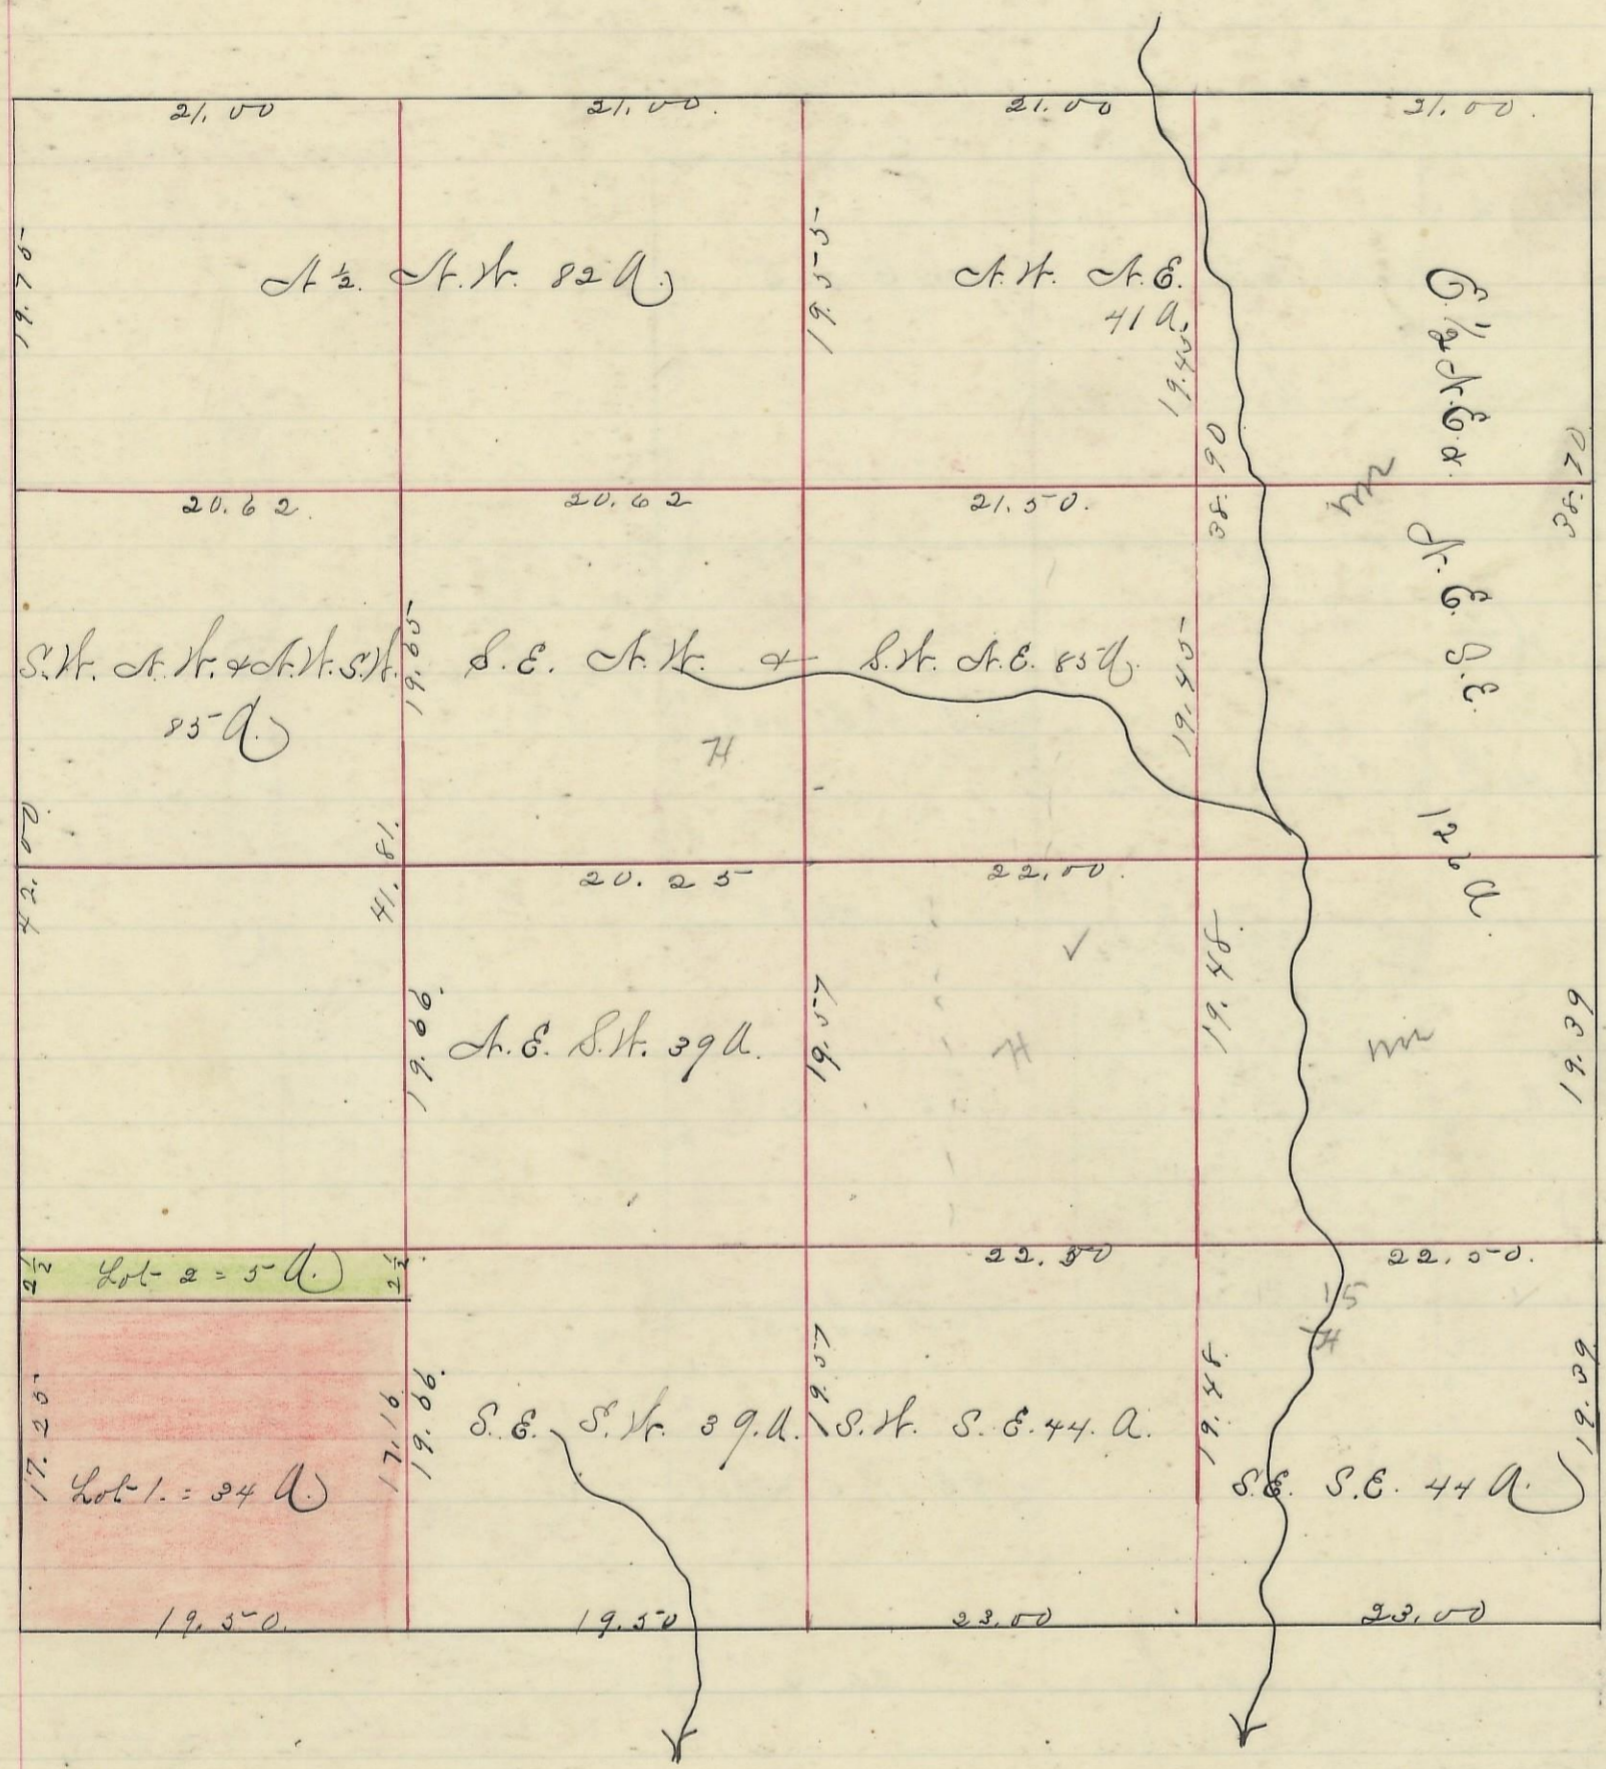 21.00 21.00. 21.00 21.00.
19.75
N ½. N.W. 82 A.
19.55
N.W. N.E.
41 A.
19.45
E 1/2 N.E. &
N. E. S.E.
129 A.
38.90
38.70
20.62. 20.62 21.50.
S.W. N.W. & N.W. S.W.
85 A.
19.65
S.E. N.W. & S.W. N.E. 85 A.
19.45
H
42.00
41.81.
20.25 22.00.
19.66.
N.E. S.W. 39 A.
19.57
✓
H
19.48.
19.39
22.50 22.50.
2½ Lot 2 = 5 A. 2½
15
H
17.25
Lot 1. = 34 A.
17.16
19.66.
S.E. S.W. 39. A.
19.57
S.W. S.E. 44. A.
19.48.
S.E. S.E. 44 A.
19.39
19.50. 19.50 23.00 23.00